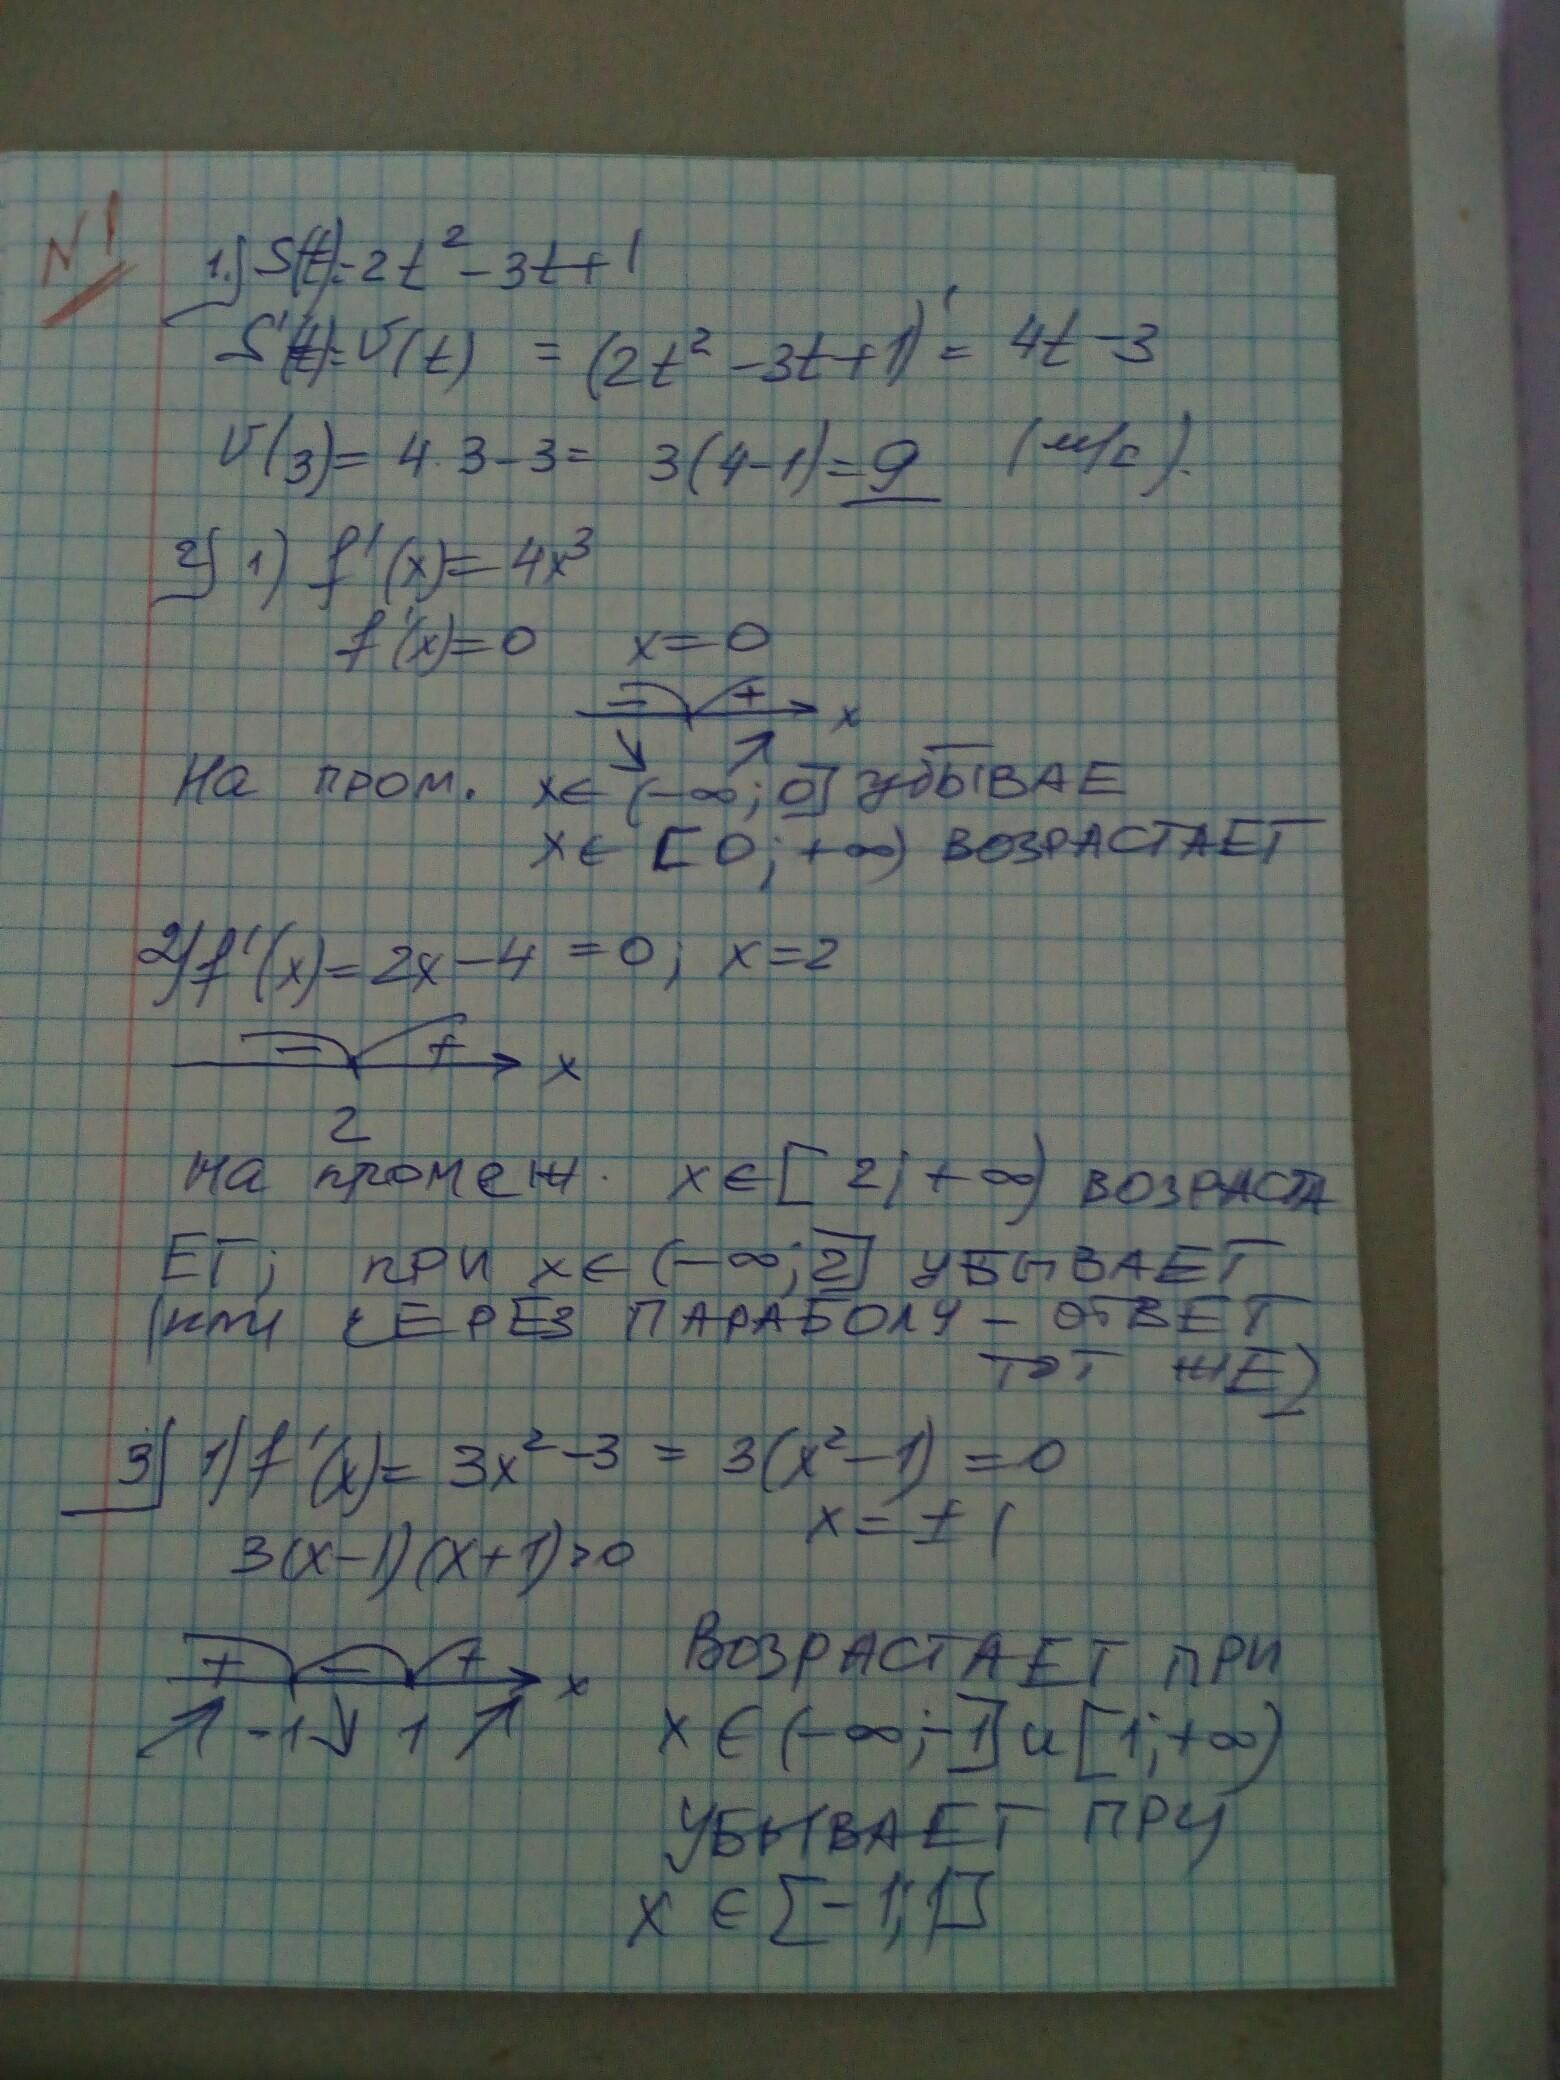 N1
1.) S(t)=2t² - 3t+1
S'(t)=V(t) = (2t² -3t+1)' = 4t-3
V(3)= 4·3-3= 3(4-1)=9 (м/с).
2) 1) f'(x)=4x³
f'(x)=0 x=0
- + x
На пром. x∈ (-∞; 0] убЫВАЕ
x∈ [0; +∞) ВОЗРАСТАЕТ
2) f'(x)=2x-4 =0; x=2
- + x
2
На промеж. x∈[2; +∞) ВОЗРАСТА
ЕТ; при x∈(-∞;2] УБЫВАЕТ
(или ЧЕРЕЗ ПАРАБОЛУ - ОТВЕТ
ТОТ ЖЕ)
3) 1) f'(x)= 3x²-3 = 3(x²-1) =0
x=±1
3(x-1)(x+1)>0
+ - + x
-1 1
ВОЗРАСТАЕТ ПРИ
x ∈(-∞;-1] и [1;+∞)
УБЫВАЕТ ПРИ
x ∈[-1;1]